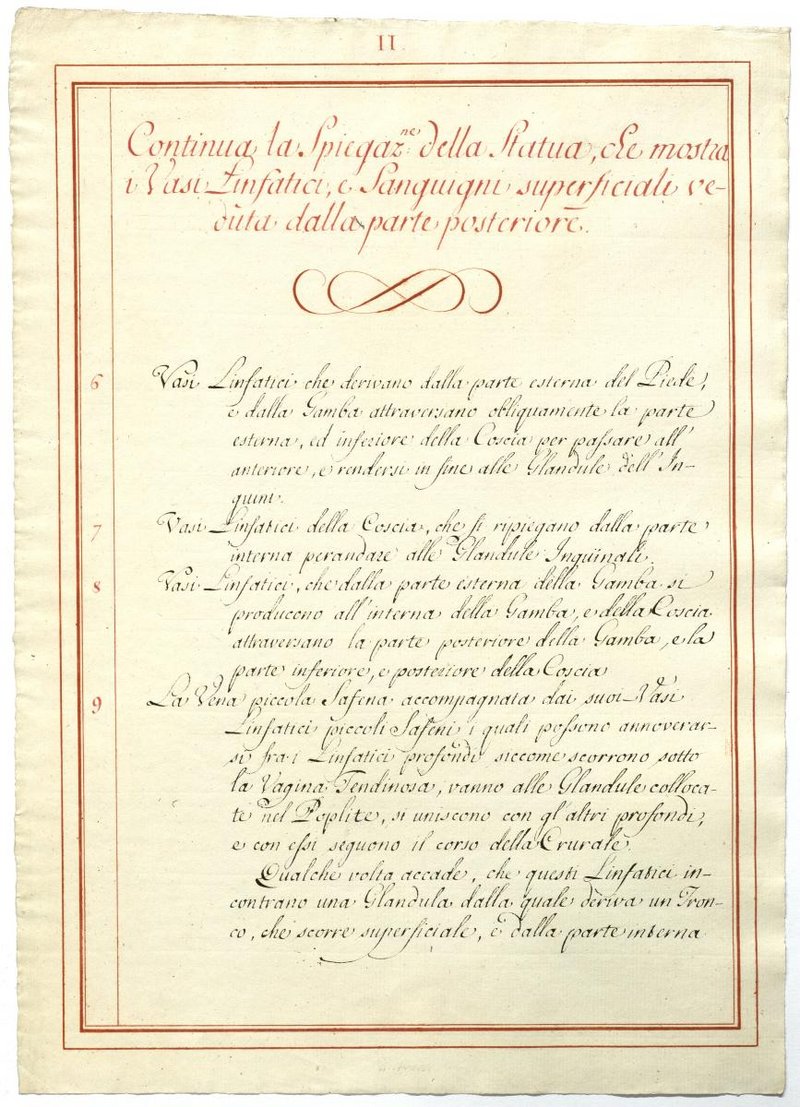 II
Continua la Spiegaz.ne della Statua, che mostra
i Vasi Linfatici, e Sanguigni superficiali ve-
duta dalla parte posteriore.
6 Vasi Linfatici che derivano dalla parte esterna del Piede,
e dalla Gamba attraversano obliquamente la parte
esterna, ed inferiore della Coscia per passare all'
anteriore, e rendersi in fine alle Glandule dell'In-
guini.
7 Vasi Linfatici della Coscia, che si ripiegano dalla parte
interna per andare alle Glandule Inguinali.
8 Vasi Linfatici, che dalla parte esterna della Gamba si
producono all'interna della Gamba, e della Coscia
attraversano la parte posteriore della Gamba, e la
parte inferiore, e posteriore della Coscia
9 La Vena piccola Safena accompagnata dai suoi Vasi
Linfatici piccoli Safeni i quali possono annoverar-
si fra i Linfatici profondi siccome scorrono sotto
la Vagina Tendinosa, vanno alle Glandule colloca-
te nel Poplite, si uniscono con gl'altri profondi,
e con essi seguono il corso della Crurale.
Qualche volta accade, che questi Linfatici in-
contrano una Glandula dalla quale deriva un Tron-
co, che scorre superficiale, e dalla parte interna